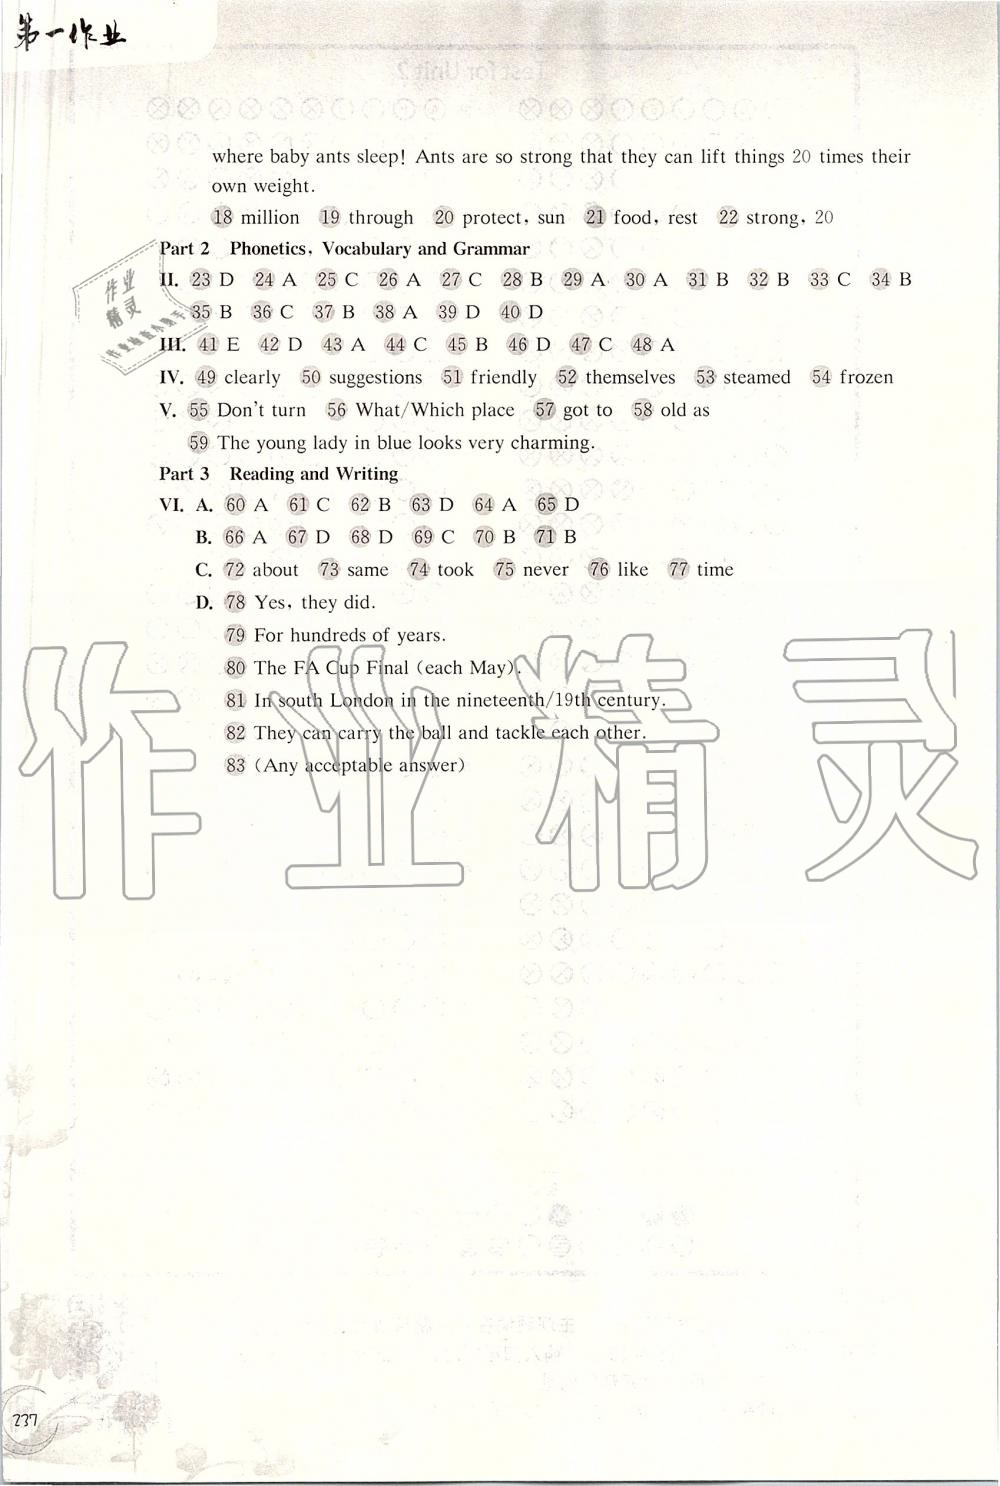 第一作业
where baby ants sleep! Ants are so strong that they can lift things 20 times their
own weight.
18 million 19 through 20 protect, sun 21 food, rest 22 strong, 20
Part 2 Phonetics, Vocabulary and Grammar
II. 23 D 24 A 25 C 26 A 27 C 28 B 29 A 30 A 31 B 32 B 33 C 34 B
35 B 36 C 37 B 38 A 39 D 40 D
III. 41 E 42 D 43 A 44 C 45 B 46 D 47 C 48 A
IV. 49 clearly 50 suggestions 51 friendly 52 themselves 53 steamed 54 frozen
V. 55 Don't turn 56 What/Which place 57 got to 58 old as
59 The young lady in blue looks very charming.
Part 3 Reading and Writing
VI. A. 60 A 61 C 62 B 63 D 64 A 65 D
B. 66 A 67 D 68 D 69 C 70 B 71 B
C. 72 about 73 same 74 took 75 never 76 like 77 time
D. 78 Yes, they did.
79 For hundreds of years.
80 The FA Cup Final (each May).
81 In south London in the nineteenth/19th century.
82 They can carry the ball and tackle each other.
83 (Any acceptable answer)
作业精灵
作业
精灵
237